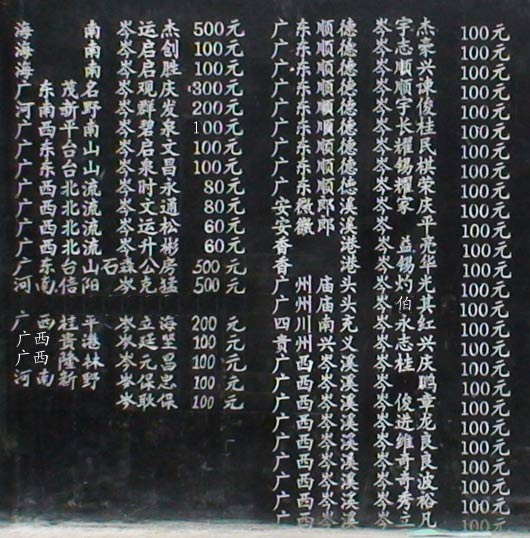 海南 岑运杰 500元
海南 岑启创 100元
海南 岑启胜 100元
广东茂名 岑观庆 300元
河南新野 岑群发 200元
广西平南 岑碧泉 100元
广东台山 岑启文 100元
广东台山 岑泉昌 100元
广西北流 岑时永 80元
广西北流 岑文通 80元
广西北流 岑运松 60元
广西北流 岑升彬 60元
广东台山 石森公房 500元
河南信阳 岑克猛 500元
广西桂平 岑立海 200元
广西贵港 岑廷坚 100元
广西隆林 岑元昌 100元
河南新野 岑保忠 100元
岑耿保 100元
广东顺德 岑宇杰 100元
广东顺德 岑志荣 100元
广东顺德 岑顺兴 100元
广东顺德 岑顺谏 100元
广东顺德 岑宇俊 100元
广东顺德 岑长桂 100元
广东顺德 岑耀民 100元
广东顺德 岑锡棋 100元
广东顺德 岑耀荣 100元
安徽郎溪 岑家庆 100元
安徽郎溪 岑平 100元
香港 岑益亮 100元
香港 岑锡华 100元
广州庙头 岑灼光 100元
广州庙头 岑伯其 100元
四川南充 岑永红 100元
贵州兴义 岑志兴 100元
广西岑溪 岑桂庆 100元
广西岑溪 岑鹏 100元
广西岑溪 岑俊章 100元
广西岑溪 岑进龙 100元
广西岑溪 岑维良 100元
广西岑溪 岑奇良 100元
广西岑溪 岑奇波 100元
广西岑溪 岑秀裕 100元
广西岑溪 岑立凡 100元